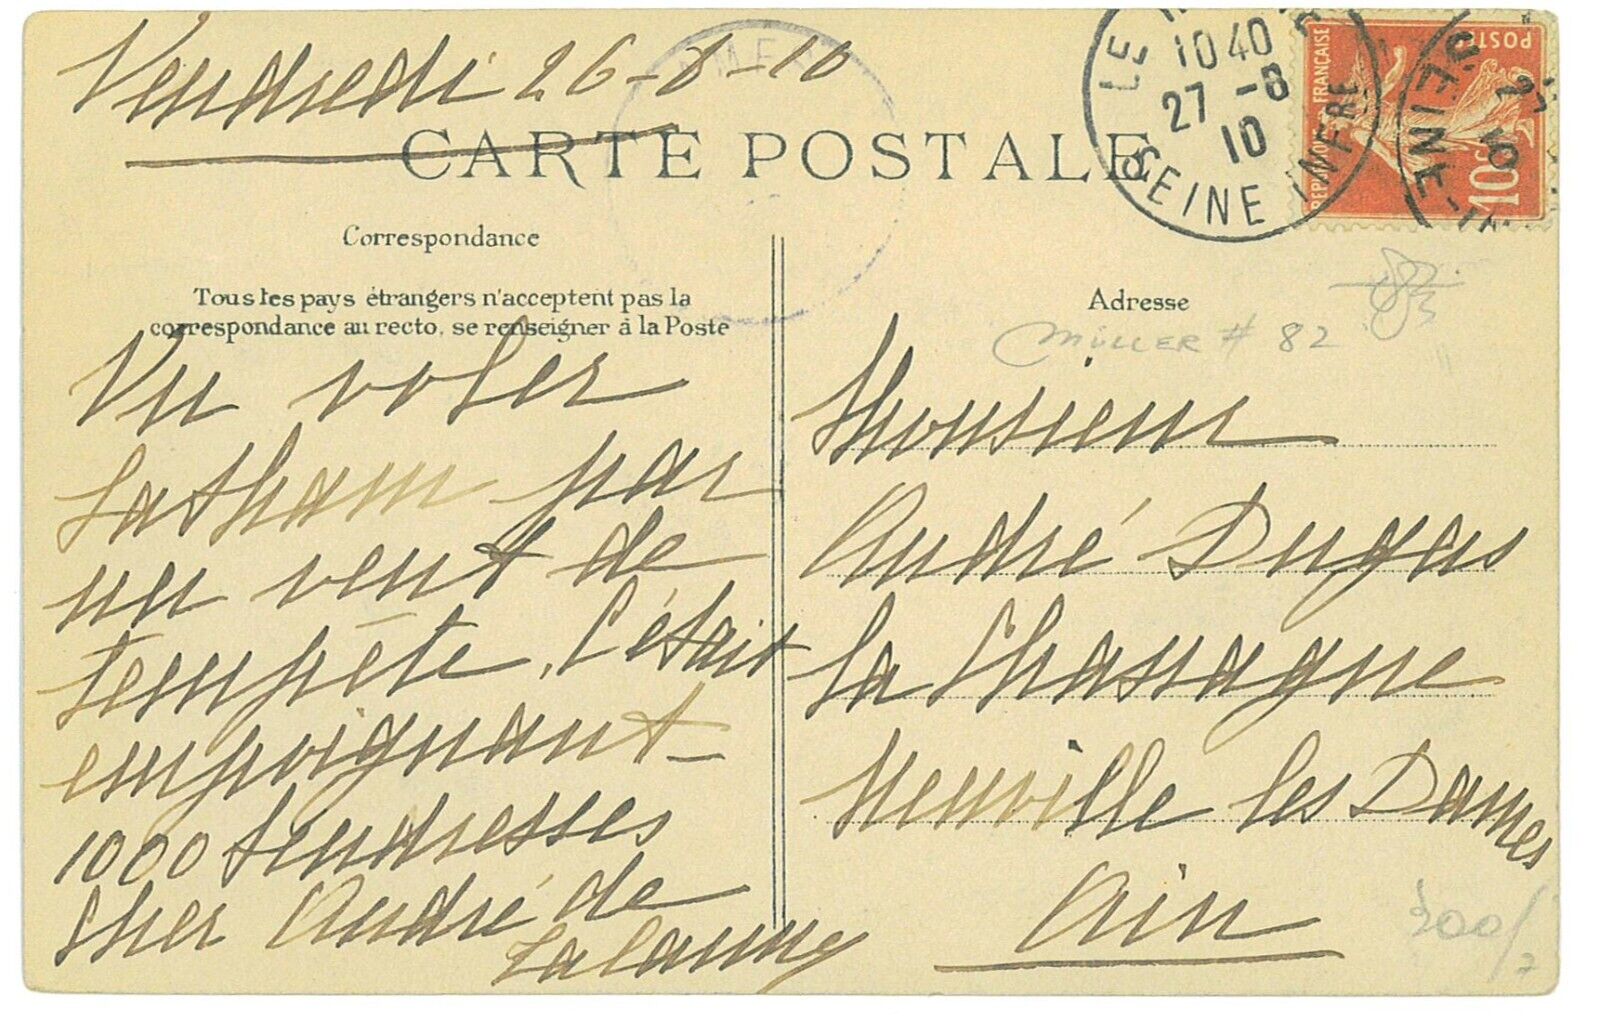 Vendredi 26-8-10
CARTE POSTALE
LE
1040
27 -8
10
SEINE INFRE
REPUBLIQUE FRANÇAISE
POSTES
10c
SEINE-IN
27
10
Correspondance
Tous les pays étrangers n'acceptent pas la
correspondance au recto, se renseigner à la Poste
Vu voler
Latham par
un vent de
tempête. C'était
empoignant
1000 tendresses
Cher André de
Adresse
MÜLLER # 82
Monsieur
André Dugas
La Chassagne
Neuville les Dames
Ain
300/
7